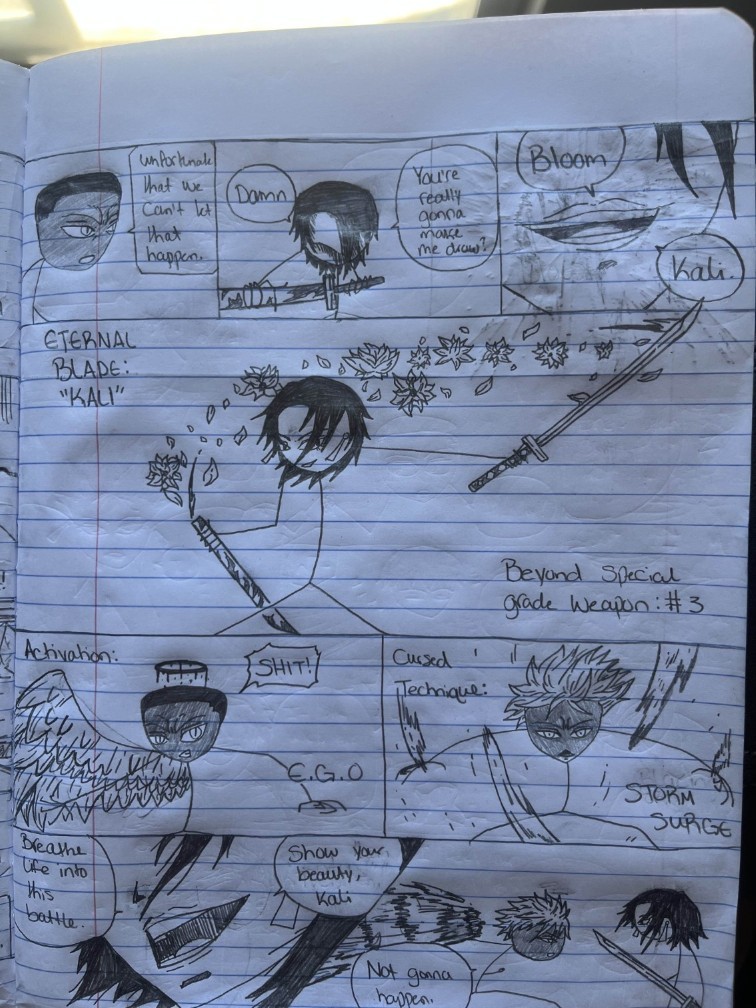 unfortunate
that we
Can't let
that
happen.
Damn
You're
really
gonna
make
me draw?
Bloom
Kali.
ETERNAL
BLADE:
"KALI"
Beyond Special
grade Weapon: #3
Activation:
SHIT!
E.G.O
Cursed
Technique:
STORM
SURGE
Breathe
life into
this
battle.
Show your
beauty,
Kali
Not gonna
happen.